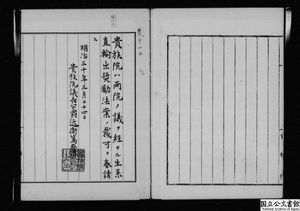 貴族院ハ両院ノ議ヲ経タル生糸
直輸出奨励法案ノ裁可ヲ奏請
ス
明治三十年三月二十四日
貴族院議長公爵近衛篤麿
国立公文書館
National Archives of Japan